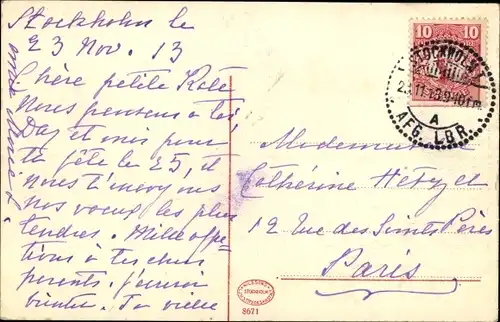 Stockholm le
23 Nov. 13
Chère petite Kate
Nous pensons à toi,
Day et moi pour
ta fête le 25, et
nous t'envoyons
nos voeux les plus
tendres. Mille affec-
tions à tes chers
parents. J'écrirai
bientôt. Ta vieille
10 10
STOCKHOLM
23.11.13.9-10 f.m.
A
AFG. L.BR.
Mademoiselle
Catherine
12 Rue des Saints Pères
Paris
STOCKHOLM
8671